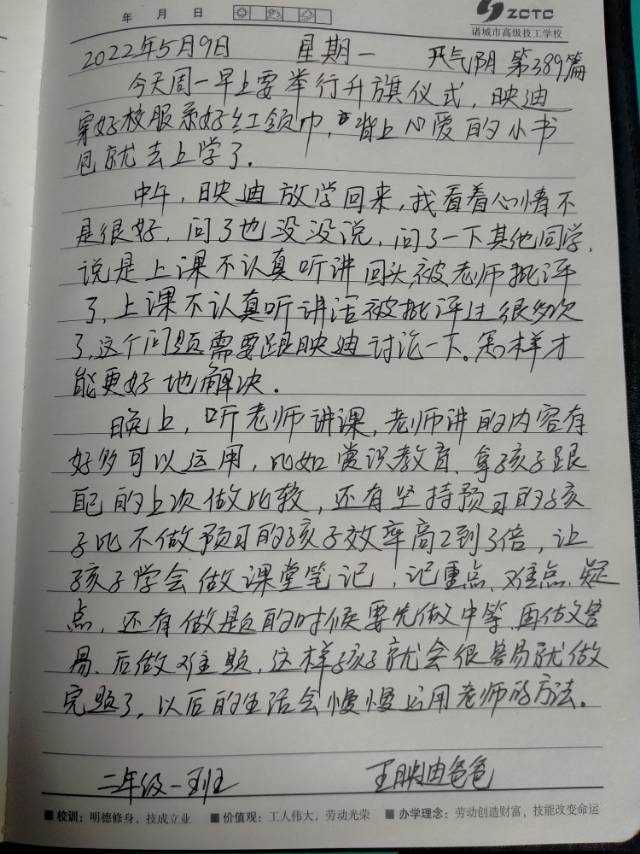 年 月 日
ZCTC
诸城市高级技工学校
2022年5月9日 星期一 天气阴 第389篇
今天周一早上要举行升旗仪式，映迪
穿好校服系好红领巾，背上心爱的小书
包就去上学了.
中午，映迪放学回来，我看着心情不
是很好，问了也没没说，问了一下其他同学，
说是上课不认真听讲回头被老师批评
了，上课不认真听讲话被批评过很多次
了，这个问题需要跟映迪讨论一下。怎样才
能更好地解决.
晚上，听老师讲课，老师讲的内容有
好多可以运用，比如赏识教育、拿孩子跟
自己的上次做比较，还有坚持预习的孩
子比不做预习的孩子效率高2到3倍，让
孩子学会做课堂笔记，记重点、难点、疑
点，还有做题的时候要先做中等、再做容
易、后做难题，这样孩子就会很容易就做
完题了，以后的生活会慢慢运用老师的方法。
二年级一班 王映迪爸爸
■校训：明德修身，技成立业 ■价值观：工人伟大，劳动光荣 ■办学理念：劳动创造财富，技能改变命运